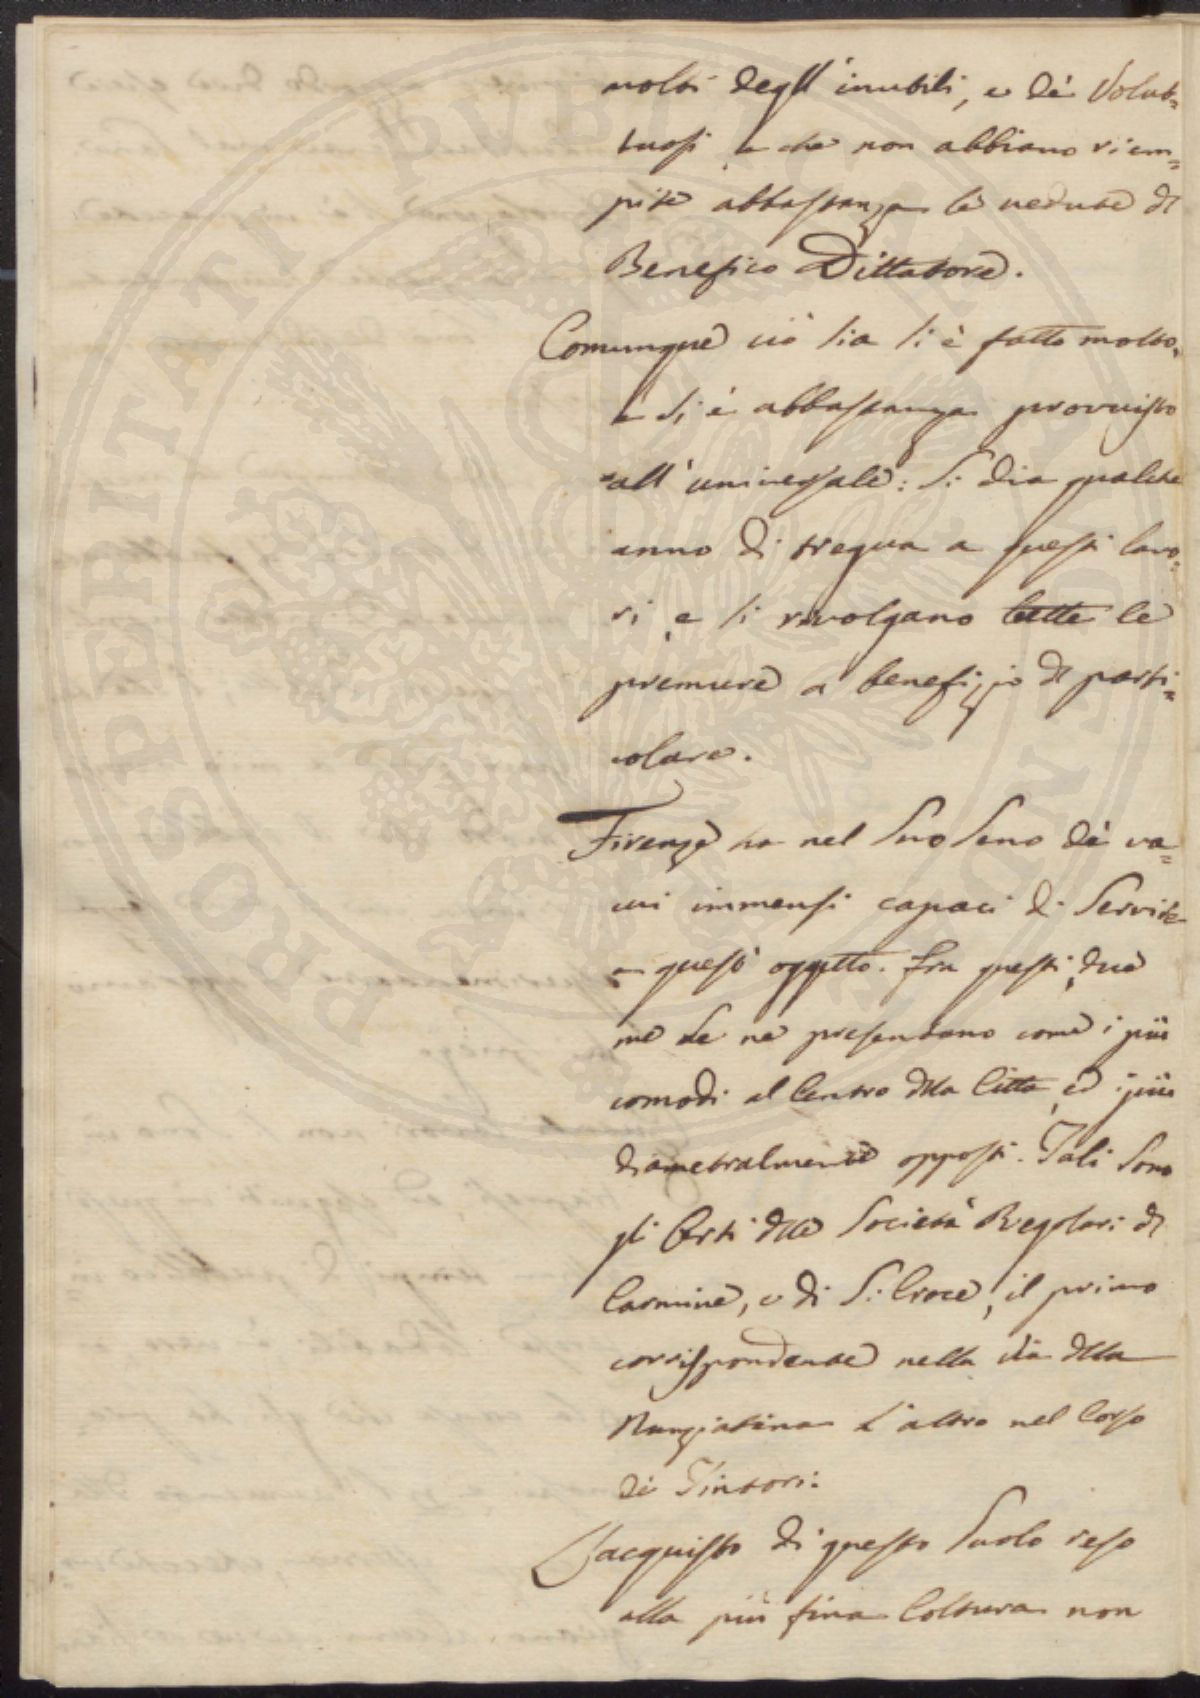 molti degl' inutili, e de' Volut=
tuosi, e che non abbiano riem=
pite abbastanza le vedute di
Benefico Dittatore.
Comunque ciò sia si è fatto molto,
e si è abbastanza provvisto
all' universale: Si dia qualche
anno di tregua a questi lavo=
ri, e si rivolgano tutte le
premure a benefizio di parti=
colare.
Firenze ha nel Suo Seno de' va=
cui immensi capaci di Servire
a questo oggetto. fra questi, due
me Se ne presentano come i più
comodi al Centro della Città, ed i più
diametralmente opposti. Tali Sono
gli Orti delle Società Regolari di
Carmine, e di S: Croce, il primo
corrispondente nella via della
Nunziatina L'altro nel Corso
de Tintori:
L'acquisto di questo Suolo reso
alla più fina Coltura non
PROSPERITATI PVBLICAE AVGENDAE